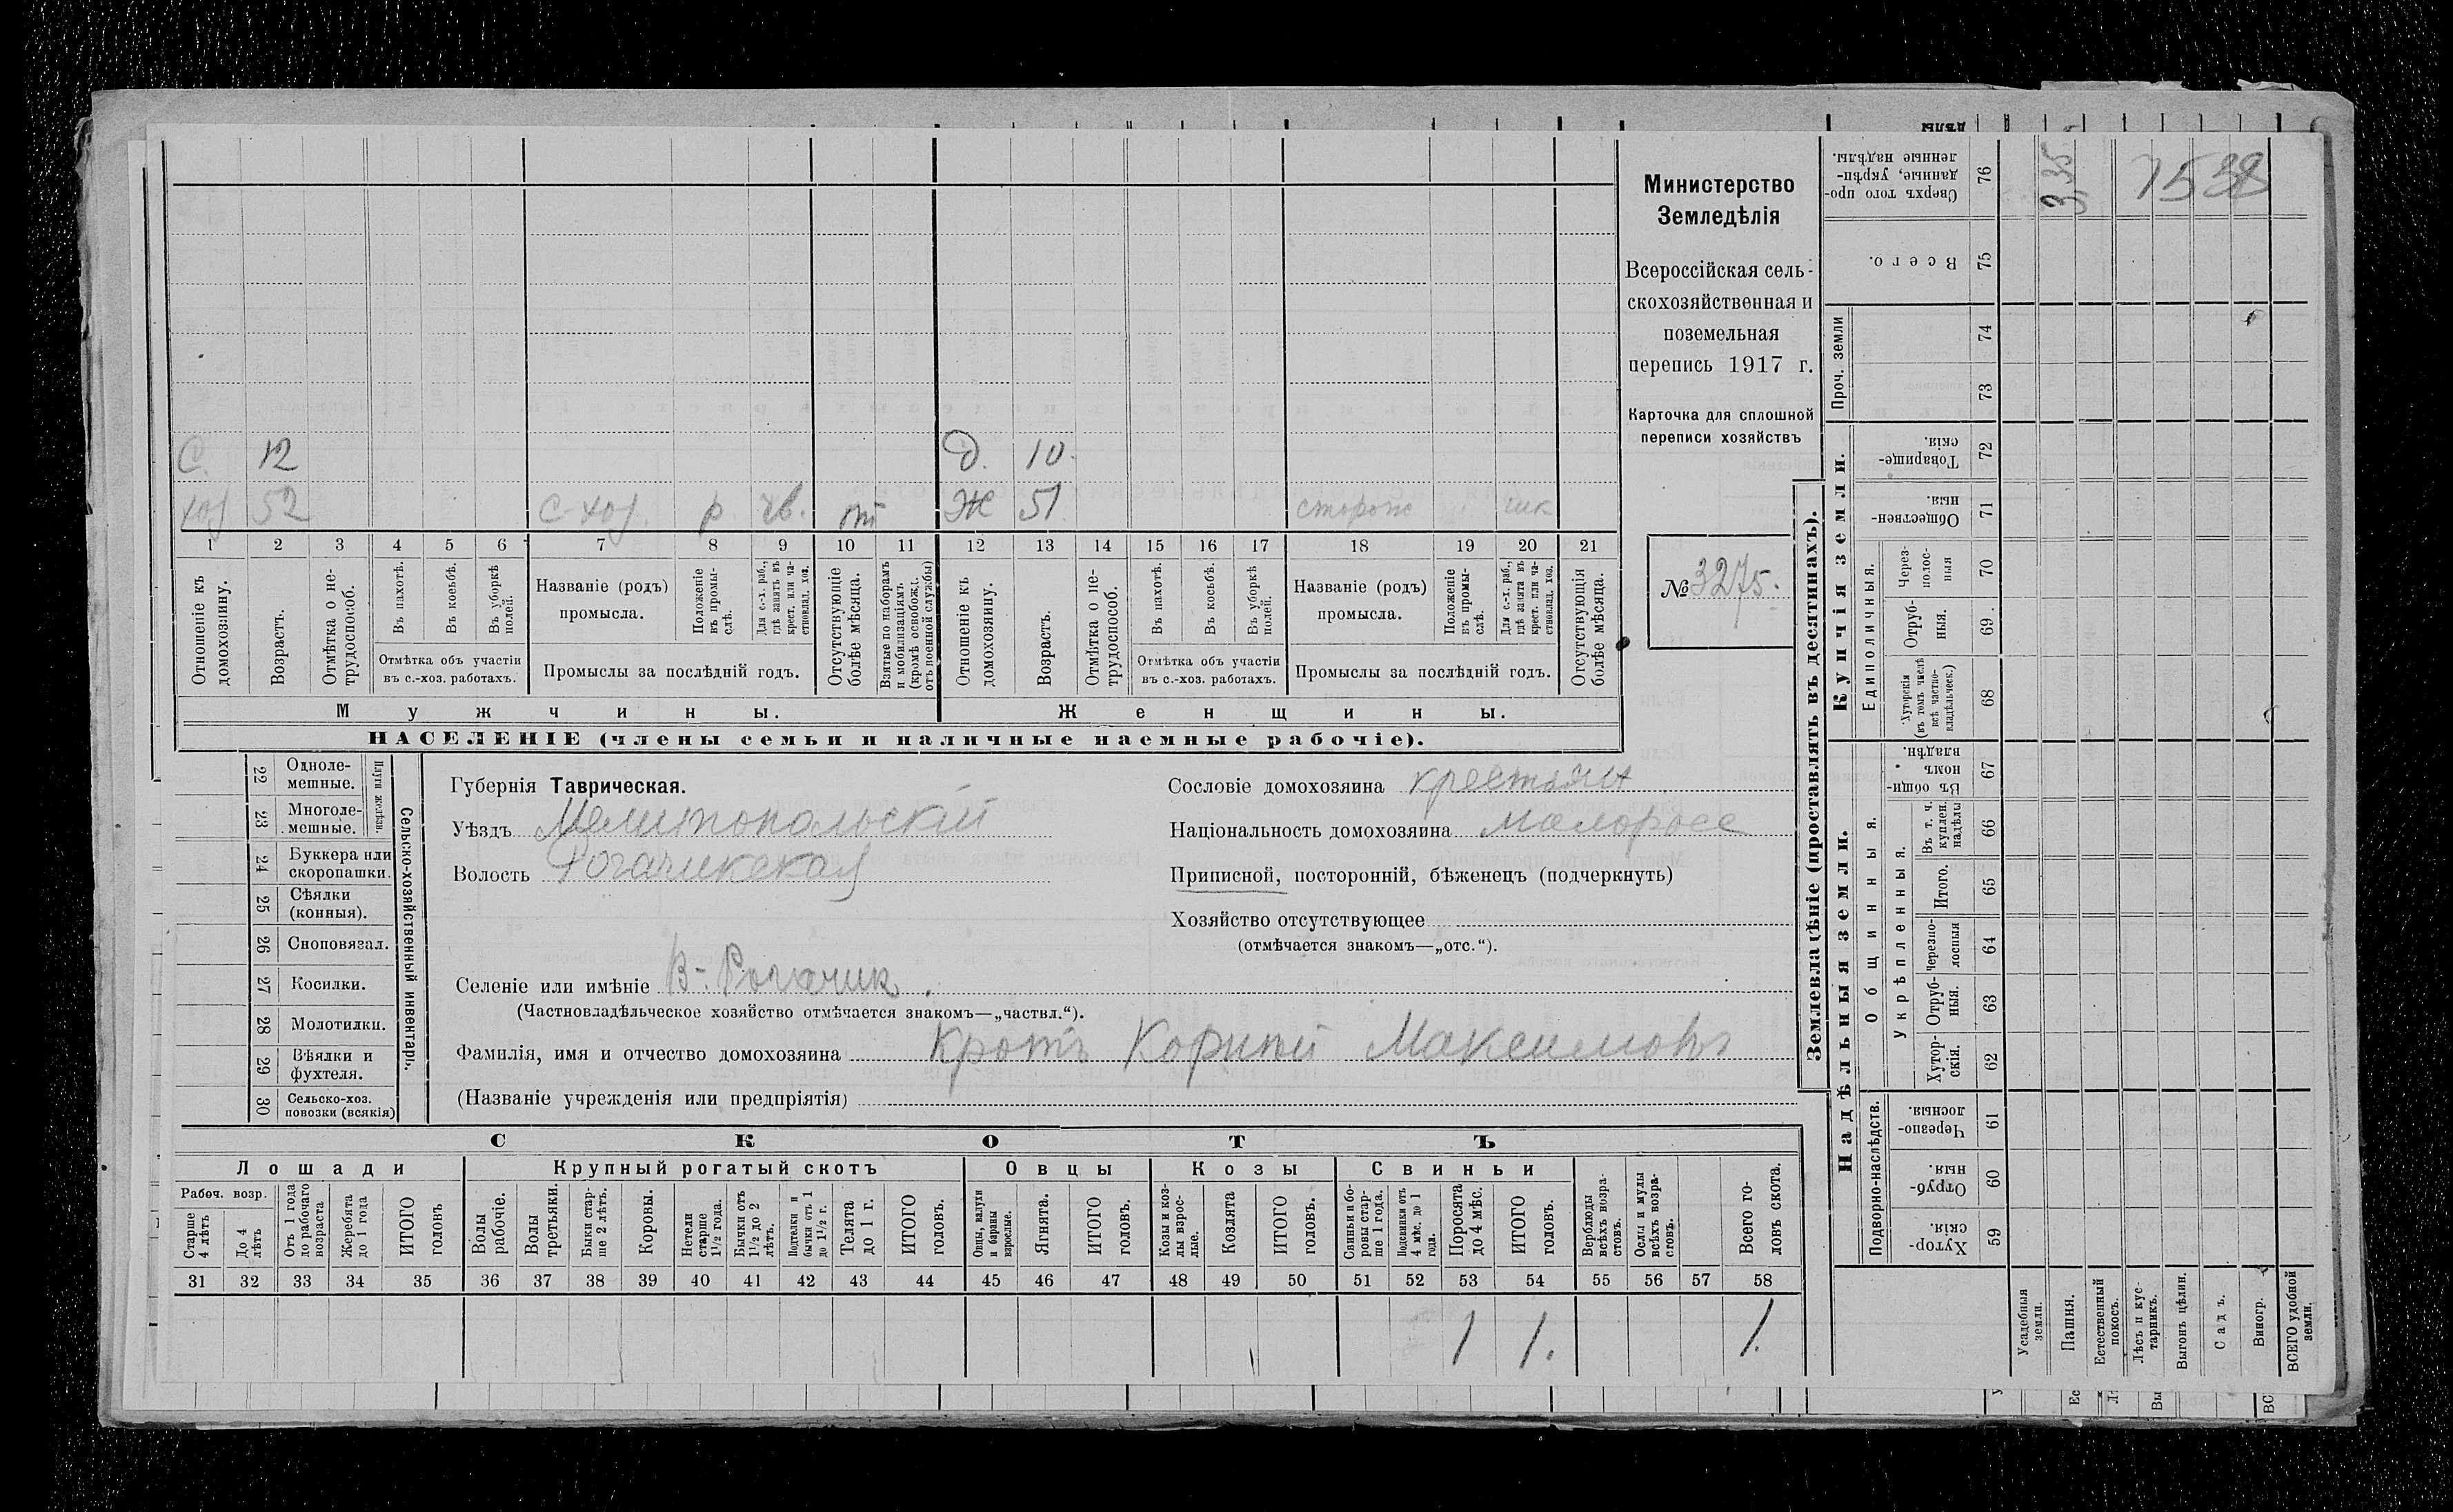 С. 12 Д. 10.
хоз 52 с-хоз. р чв. от Ж 51 сторож чик
1 2 3 4 5 6 7 8 9 10 11 12 13 14 15 16 17 18 19 20 21
Отношеніе къ домохозяину.
Возрастъ.
Отмѣтка о не-
трудоспособ.
Въ пахотѣ.
Въ косьбѣ.
Въ уборкѣ
полей.
Отмѣтка объ участіи
въ с.-хоз. работахъ.
Названіе (родъ)
промысла.
Положеніе
въ промы-
слѣ.
Для с.-х. раб.,
гдѣ занятъ въ
крест. или ча-
стновлад. хоз.
Промыслы за послѣдній годъ.
Отсутствующіе
болѣе мѣсяца.
Взятые по наборамъ
и мобилизаціямъ
(кромѣ освобожд.
отъ военной службы)
Отношеніе къ
домохозяину.
Возрастъ.
Отмѣтка о не-
трудоспособ.
Въ пахотѣ.
Въ косьбѣ.
Въ уборкѣ
полей.
Отмѣтка объ участіи
въ с.-хоз. работахъ.
Названіе (родъ)
промысла.
Положеніе
въ промы-
слѣ.
Для с.-х. раб.,
гдѣ занята въ
крест. или ча-
стновлад. хоз.
Промыслы за послѣдній годъ.
Отсутствующія
болѣе мѣсяца.
Мужчины. Женщины.
НАСЕЛЕНІЕ (члены семьи и наличные наемные рабочіе).
Министерство
Земледѣлія
Всероссійская сель-
скохозяйственная и
поземельная
перепись 1917 г.
Карточка для сплошной
переписи хозяйствъ
№ 3275.
22 Одноле-
мешные.
23 Многоле-
мешные.
Плуги желѣзн.
24 Буккера или
скоропашки.
25 Сѣялки
(конныя).
26 Сноповязал.
27 Косилки.
28 Молотилки.
29 Вѣялки и
фухтеля.
30 Сельско-хоз.
повозки (всякія)
Сельско-хозяйственный инвентарь.
Губернія Таврическая.
Уѣздъ Мелитопольскій
Волость Рогачикская
Сословіе домохозяина крестьян
Національность домохозяина малоросс
Приписной, посторонній, бѣженецъ (подчеркнуть)
Хозяйство отсутствующее
(отмѣчается знакомъ—„отс.“).
Селеніе или имѣніе В-Рогачик.
(Частновладѣльческое хозяйство отмѣчается знакомъ—„частвл.“).
Фамилія, имя и отчество домохозяина Кротъ Корнѣй Максимовъ
(Названіе учрежденія или предпріятія)
СКОТЪ
Лошади Крупный рогатый скотъ Овцы Козы Свиньи
Рабоч. возр.
Старше
4 лѣтъ
До 4
лѣтъ
Отъ 1 года
до рабочаго
возраста
Жеребята
до 1 года
ИТОГО
головъ
Волы
рабочіе.
Волы
третьяки.
Быки стар-
ше 2 лѣтъ.
Коровы.
Нетели
старше
1½ года.
Бычки отъ
1½ до 2
лѣтъ.
Подтелки и
бычки отъ 1
до 1½ г.
Телята
до 1 г.
ИТОГО
головъ.
Овцы, валухи
и бараны
взрослые.
Ягнята.
ИТОГО
головъ.
Козы и коз-
лы взрос-
лые.
Козлята
ИТОГО
головъ.
Свиньи и бо-
ровы стар-
ше 1 года.
Подсвинки отъ
4 мѣс. до 1
года.
Поросята
до 4 мѣс.
ИТОГО
головъ.
Верблюды
всѣхъ возра-
стовъ.
Ослы и мулы
всѣхъ возра-
стовъ.
Всего го-
ловъ скота.
31 32 33 34 35 36 37 38 39 40 41 42 43 44 45 46 47 48 49 50 51 52 53 54 55 56 57 58
1 1. 1.
Землевладѣніе (проставлять въ десятинахъ).
Сверхъ того про-
данные, укрѣп-
ленные надѣлы.
76
3,35
7538
Всего. 75
Проч. земли
74
73
Купчія земли.
Товарище-
скія. 72
Обществен-
ныя. 71
Единоличныя.
Через-
полос-
ныя 70
Отруб-
ныя. 69.
Хуторскія
(въ томъ числѣ
всѣ частно-
владѣльческ.) 68
Надѣльныя земли.
Общинныя.
Въ общи-
номъ
владѣн. 67
Укрѣпленныя.
Въ т. ч.
куплен.
надѣлы 66
Итого. 65
Черезпо-
лосныя 64
Отруб-
ныя. 63
Хутор-
скія. 62
Подворно-наслѣдств.
Черезпо-
лосныя. 61
Отруб-
ныя. 60
Хутор-
скія. 59
Усадебныя
земли.
Пашня.
Естественный
покосъ.
Лѣсъ и кус-
тарникъ.
Выгонъ цѣлин.
Садъ.
Виногр.
ВСЕГО удобной
земли.